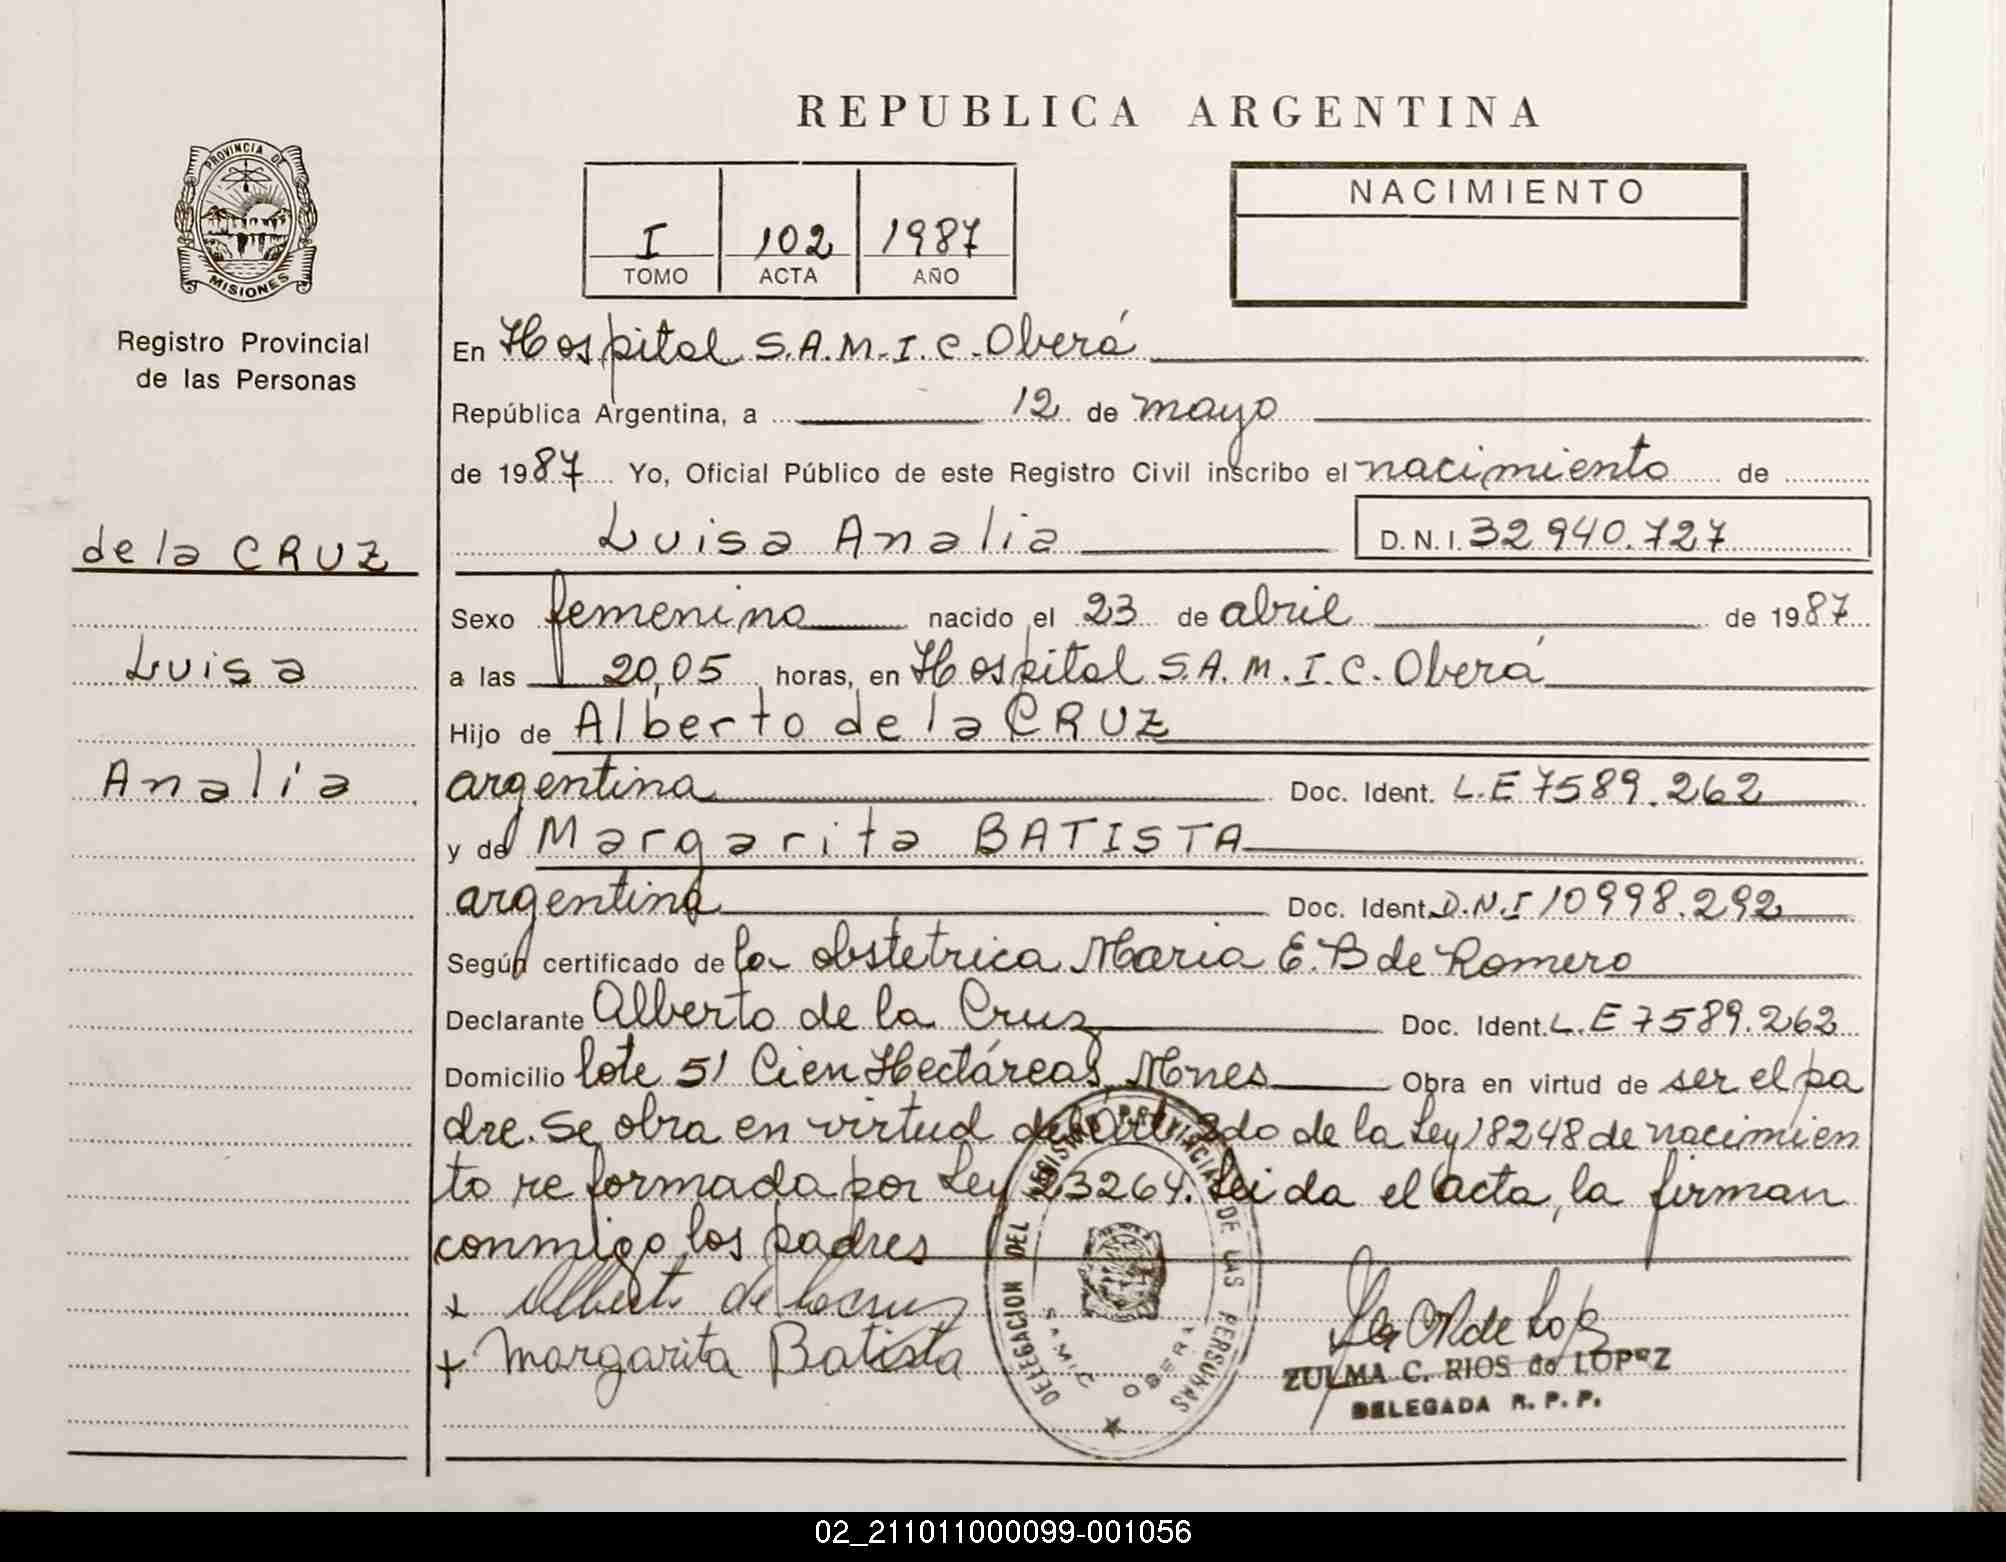 REPUBLICA ARGENTINA
PROVINCIA DE
MISIONES
Registro Provincial
de las Personas
I 102 1987
TOMO ACTA AÑO
NACIMIENTO
En Hospital S.A.M.I.C. Oberá
República Argentina, a 12 de mayo
de 1987 Yo, Oficial Público de este Registro Civil inscribo el nacimiento de
de la CRUZ
Luisa
Analia
Luisa Analia D.N.I. 32 940.727
Sexo femenino nacido el 23 de abril de 1987
a las 20,05 horas, en Hospital S.A.M.I.C. Oberá
Hijo de Alberto de la CRUZ
argentina Doc. Ident. L.E 7589.262
y de Margarita BATISTA
argentina Doc. Ident. D.N.I 10998.292
Según certificado de la obstetrica Maria E. B de Romero
Declarante Alberto de la Cruz Doc. Ident. L.E 7589.262
Domicilio lote 51 Cien Hectáreas Mnes Obra en virtud de ser el pa
dre. Se obra en virtud del Art. 2do de la Ley 18248 de nacimien
to reformada por Ley 23264. Leida el acta, la firman
conmigo los padres
+ Alberto de lacruz
+ Margarita Batista
DELEGACION DEL REGISTRO PROVINCIAL DE LAS PERSONAS
SAMIC OBERA
ZULMA C. RIOS de LOPEZ
DELEGADA R. P. P.
02_211011000099-001056